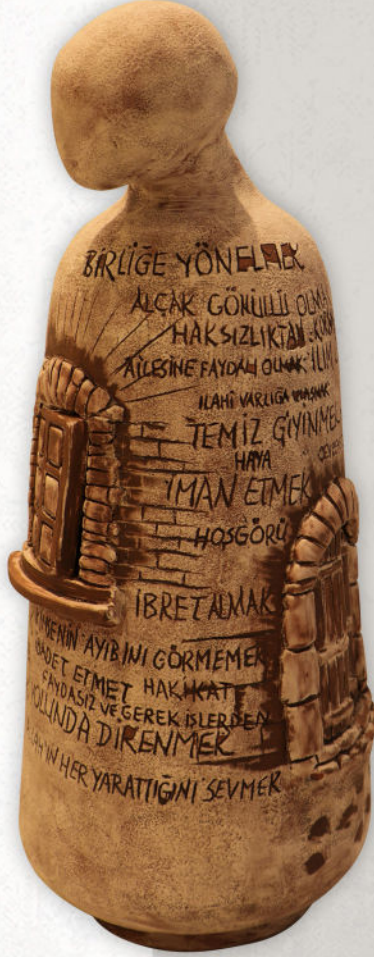 BİRLİĞE YÖNELMEK
ALÇAK GÖNÜLLÜ OLMA
HAKSIZLIKTAN
AİLESİNE FAYDALI OLMAK İLİM
İLAHİ VARLIĞA
TEMİZ GİYİNMEK
HAYA
İMAN ETMEK
HOŞGÖRÜ
İBRET ALMAK
AYIBINI GÖRMEMEK
İBADET ETMET HAKİKAT
FAYDASIZ VE GEREK İŞLERDEN
YOLUNDA DİRENMEK
HER YARATTIĞINI SEVMEK